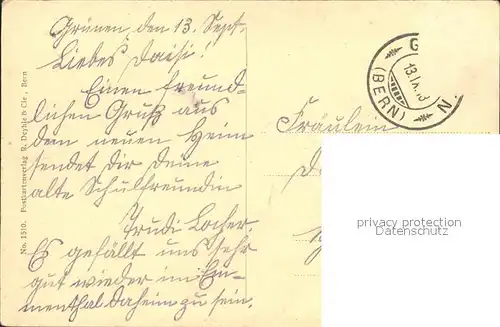 Grünen, den 13. Sept.
Liebes Daisi!
Einen freund-
lichen Gruß aus
dem neuen Heim
sendet Dir Deine
alte Schulfreundin
Trudi Locher.
Es gefällt uns sehr
gut wieder im Em-
menthal daheim zu sein.
No. 1510. Postkartenverlag R. Deyhle & Cie., Bern
G
13.IX.
(BERN)
N.
Fräulein
privacy protection
Datenschutz